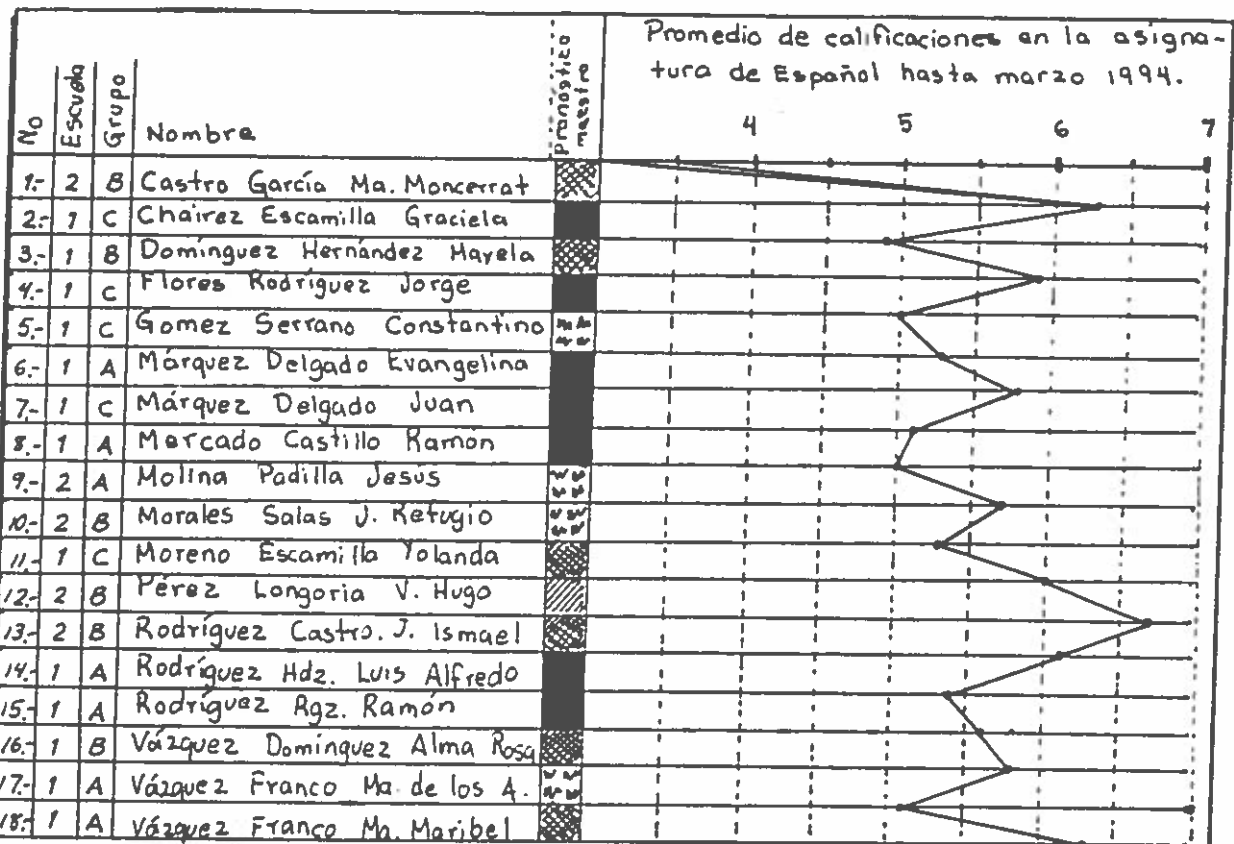 Promedio de calificaciones en la asigna-
tura de Español hasta marzo 1994.
No Escuela Grupo Nombre Pronóstico maestro 4 5 6 7
1.- 2 B Castro García Ma. Moncerrat
2.- 1 C Chairez Escamilla Graciela
3.- 1 B Domínguez Hernández Mayela
4.- 1 C Flores Rodríguez Jorge
5.- 1 C Gomez Serrano Constantino
6.- 1 A Márquez Delgado Evangelina
7.- 1 C Márquez Delgado Juan
8.- 1 A Mercado Castillo Ramon
9.- 2 A Molina Padilla Jesús
10.- 2 B Morales Salas J. Refugio
11.- 1 C Moreno Escamilla Yolanda
12.- 2 B Pérez Longoria V. Hugo
13.- 2 B Rodríguez Castro. J. Ismael
14.- 1 A Rodríguez Hdz. Luis Alfredo
15.- 1 A Rodríguez Rgz. Ramón
16.- 1 B Vázquez Domínguez Alma Rosa
17.- 1 A Vázquez Franco Ma. de los A.
18.- 1 A Vázquez Franco Ma. Maribel